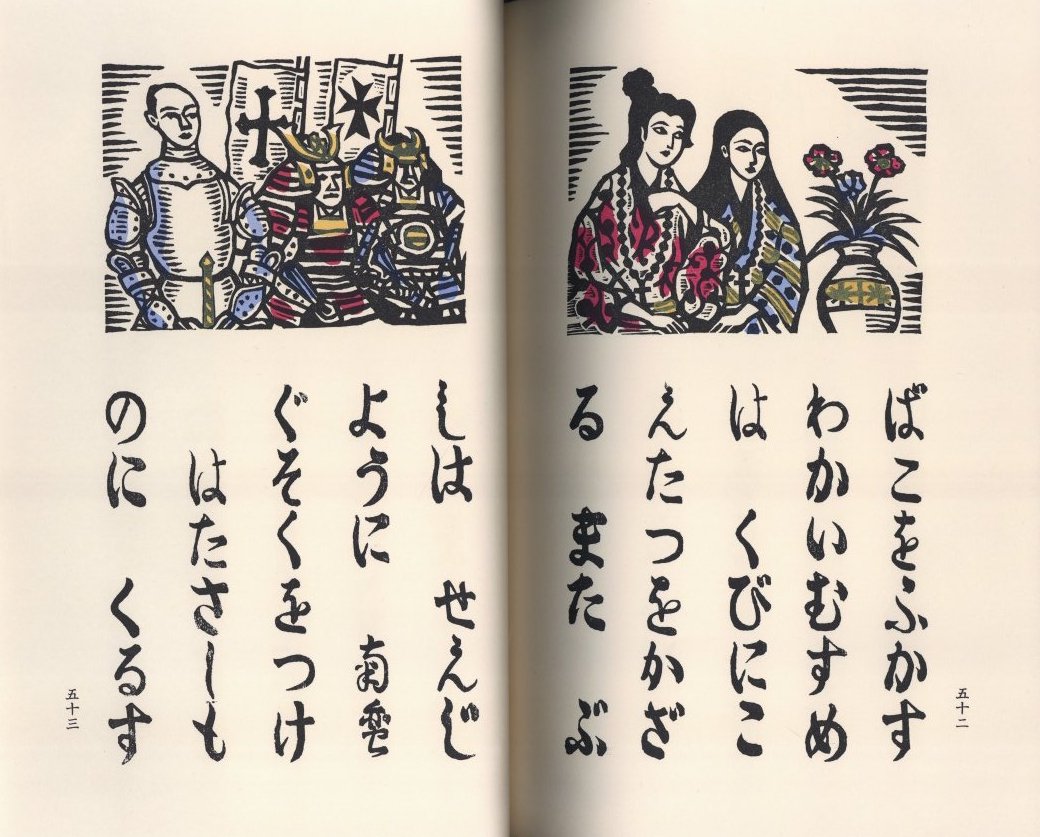 ばこをふかす
わかいむすめ
は　くびにこ
んたつをかざ
る　また　ぶ
五十二
しは　せんじ
ように　南蛮
ぐそくをつけ
はたさしも
のに　くるす
五十三